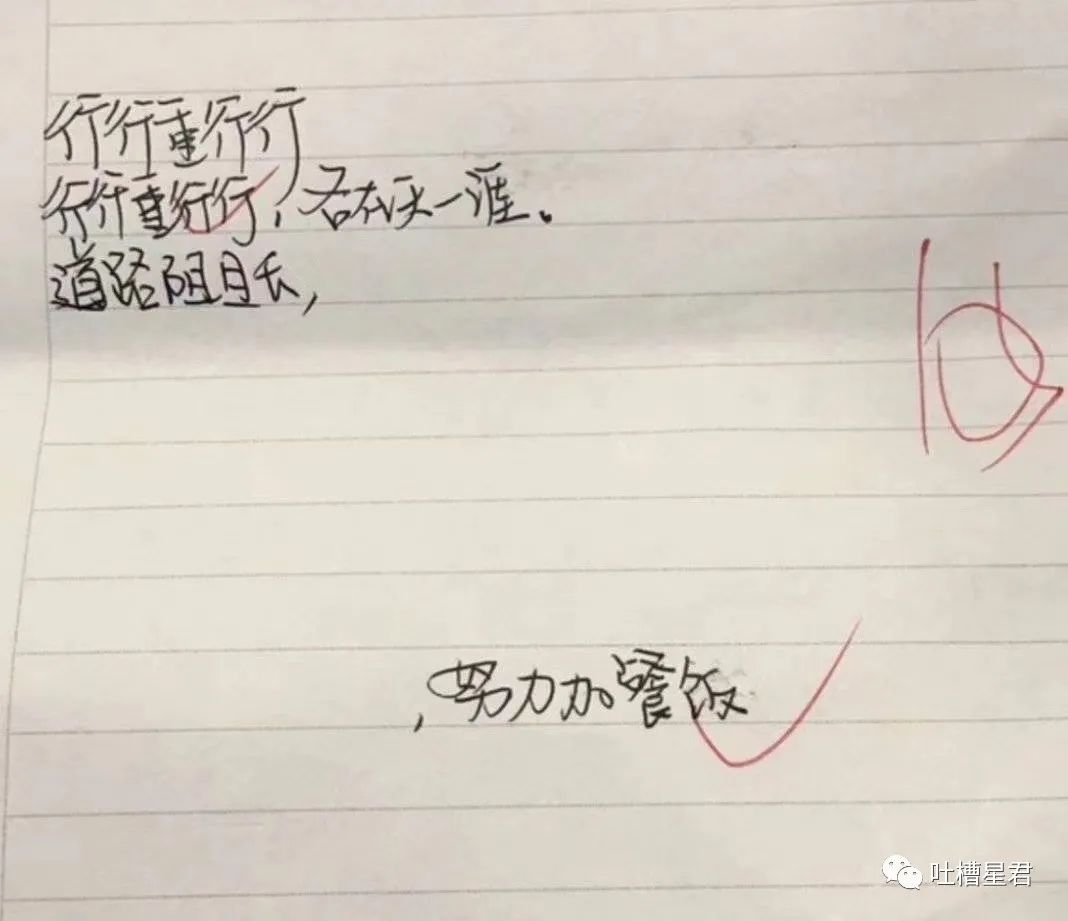 行行重行行
行行重行行,各在天一涯。
道路阻且长,
,努力加餐饭
吐槽星君